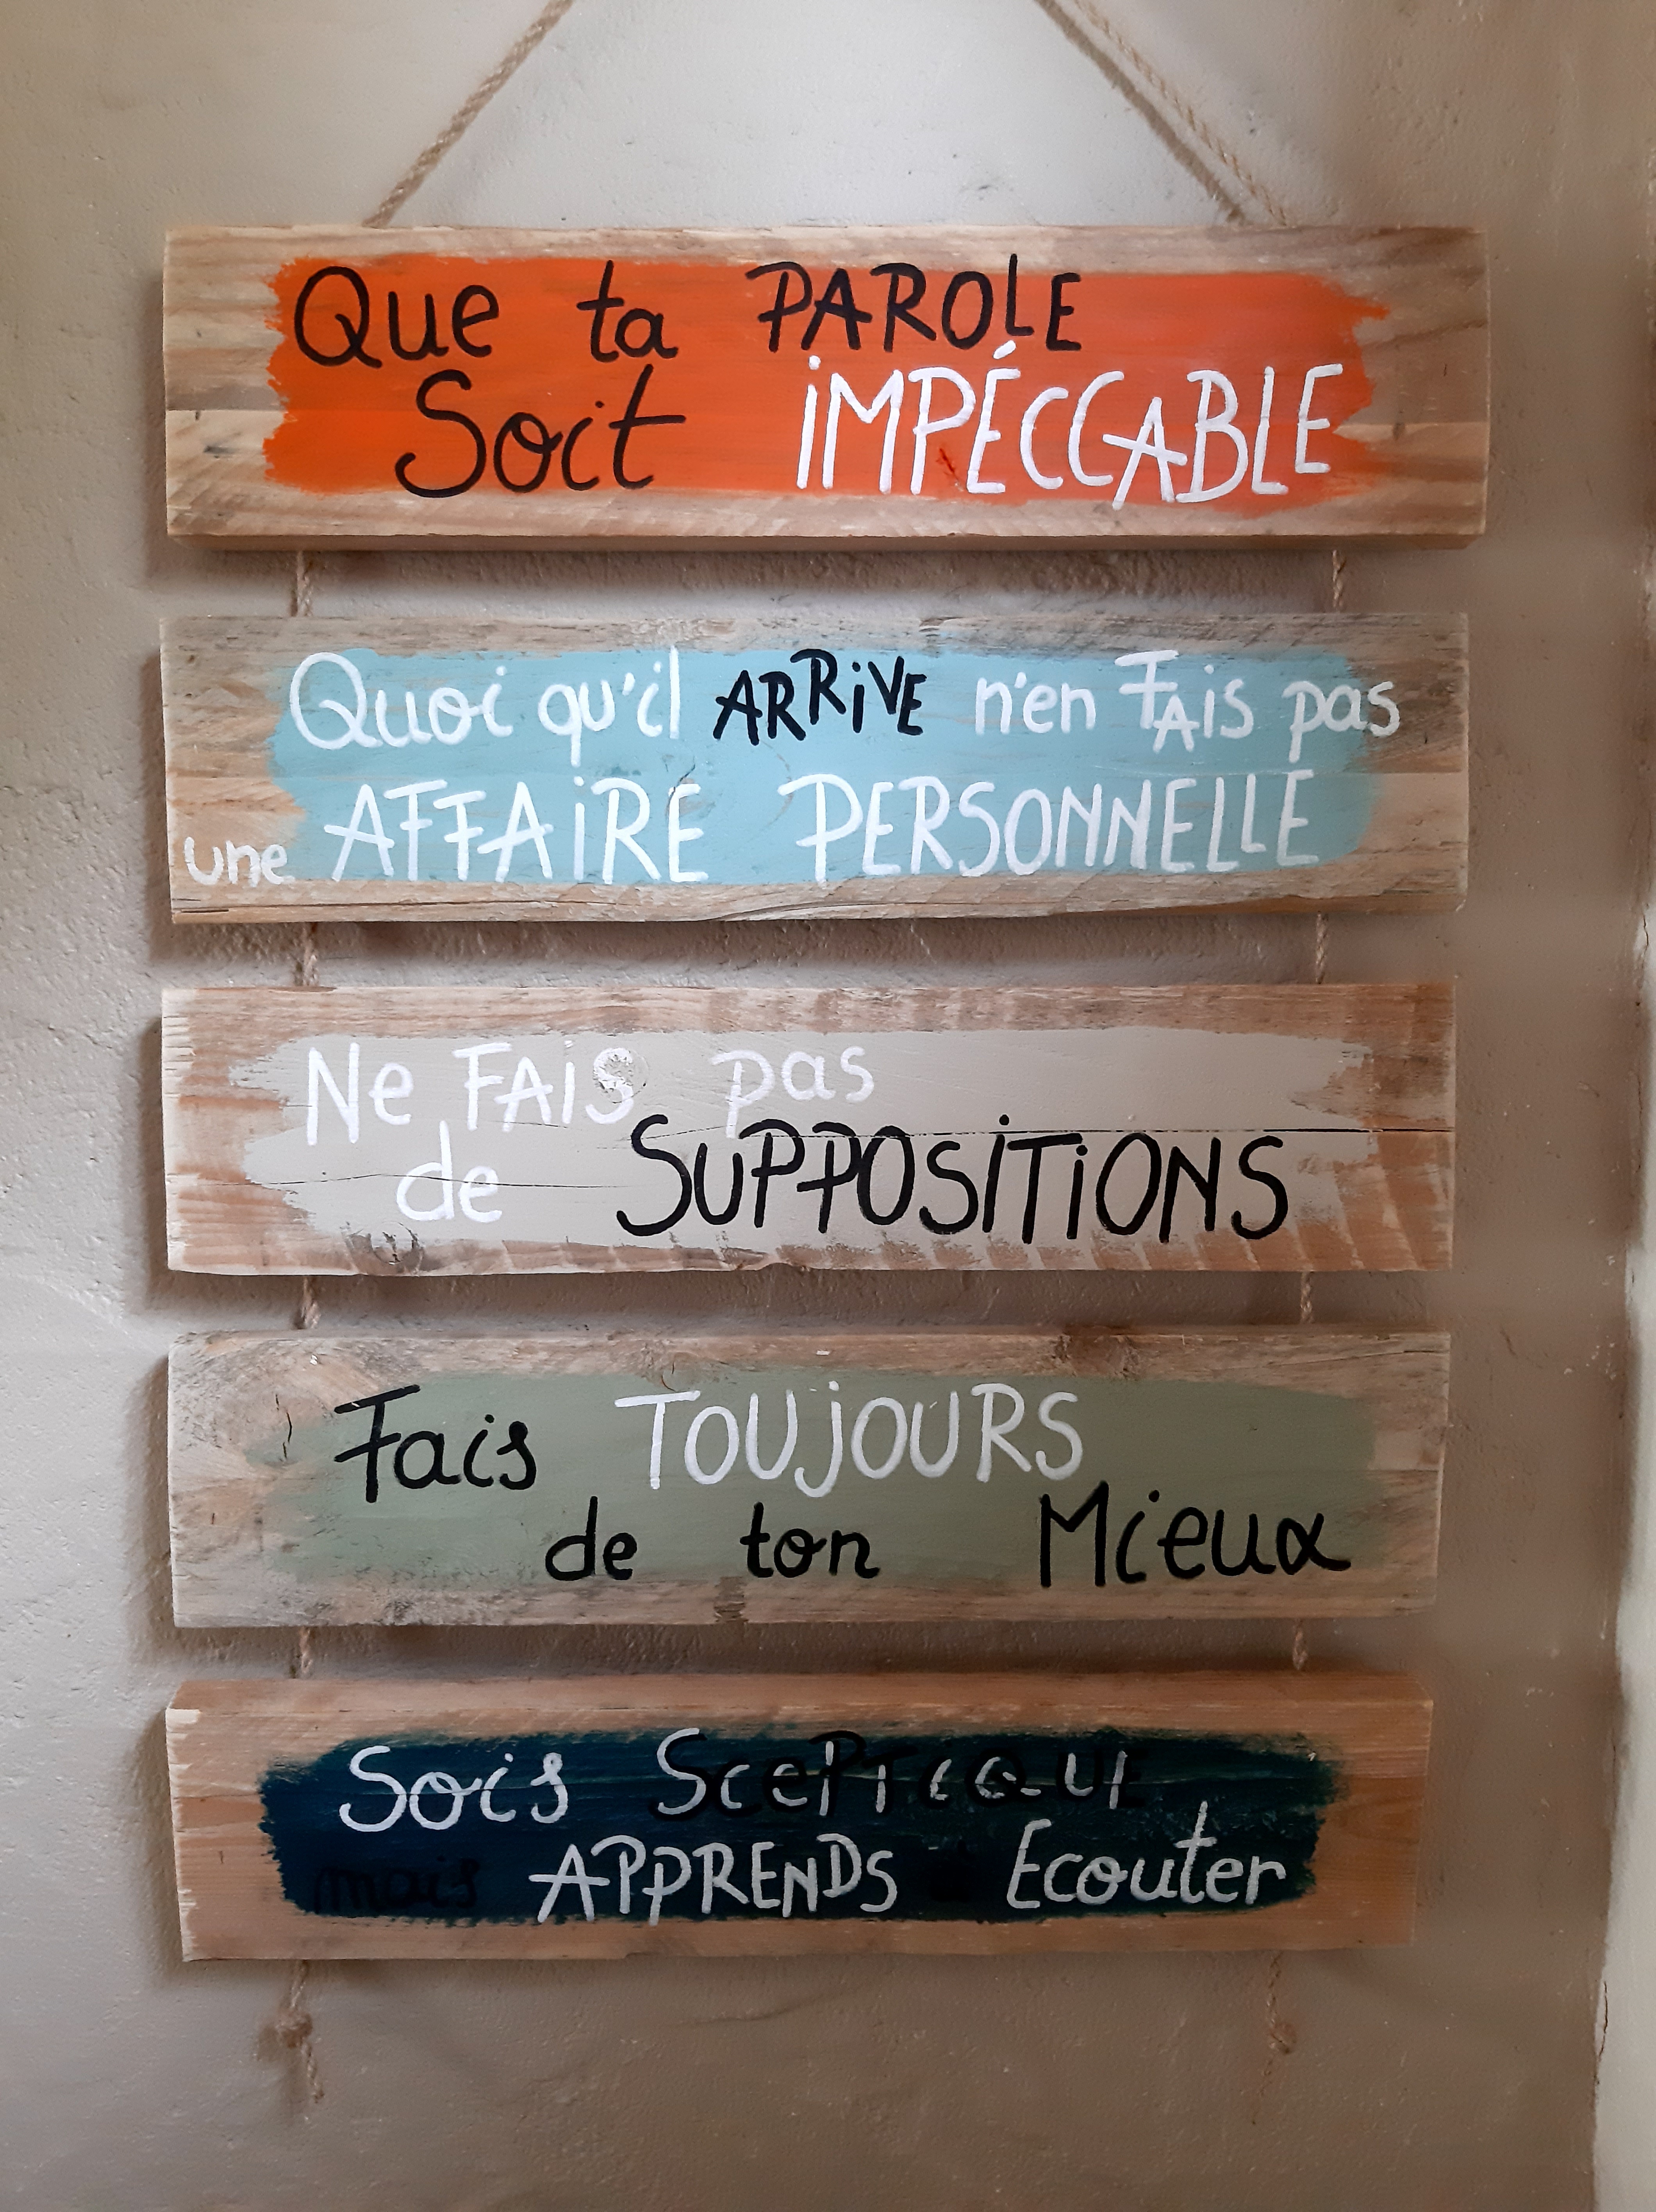 Que ta PAROLE
Soit iMPÉCCABLE
Quoi qu'il ARRiVE n'en FAis pas
une AFFAiRE PERSONNELLE
Ne FAiS pas
de SUPPOSiTiONS
Fais TOUjOURS
de ton Mieux
Sois ScePTicQUE
mais APPRENDS à Ecouter